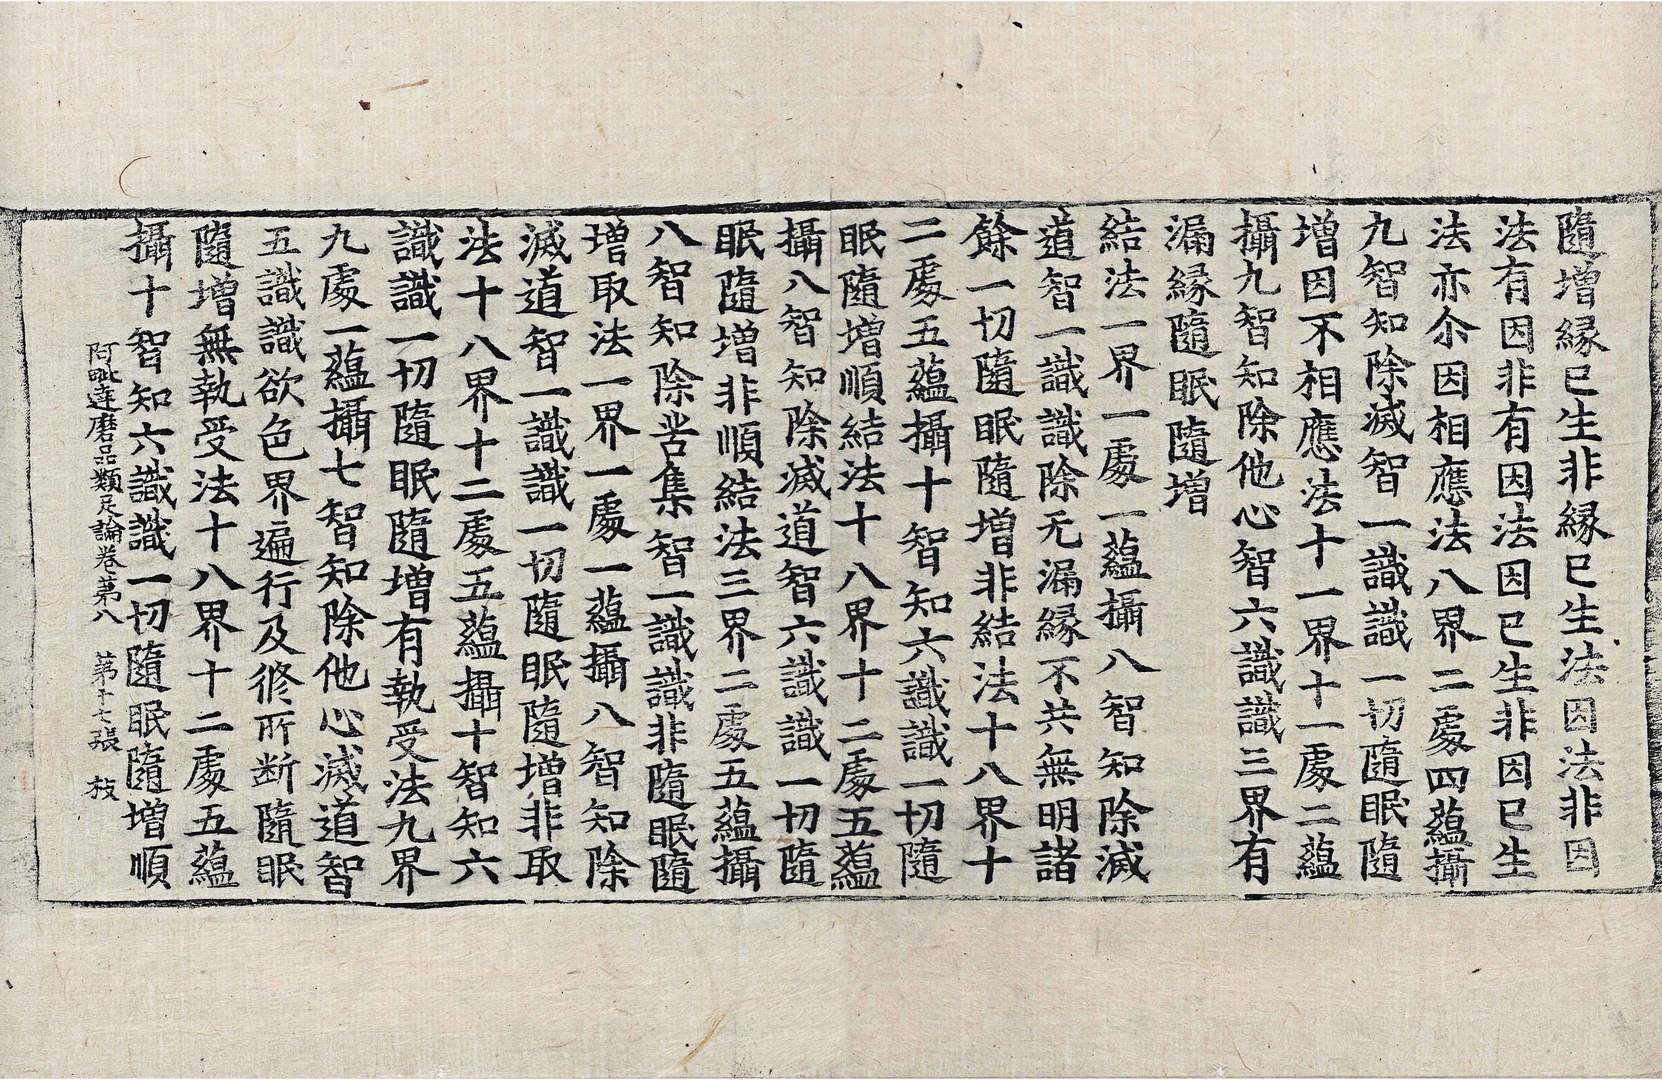 隨增緣已生非緣已生法因法非因
法有因非有因法因已生非因已生
法亦尒因相應法八界二處四蘊攝
九智知除滅智一識識一切隨眠隨
增因不相應法十一界十一處二蘊
攝九智知除他心智六識識三界有
漏緣隨眠隨增
結法一界一處一蘊攝八智知除滅
道智一識識除无漏緣不共無明諸
餘一切隨眠隨增非結法十八界十
二處五蘊攝十智知六識識一切隨
眠隨增順結法十八界十二處五蘊
攝八智知除滅道智六識識一切隨
眠隨增非順結法三界二處五蘊攝
八智知除苦集智一識識非隨眠隨
增取法一界一處一蘊攝八智知除
滅道智一識識一切隨眠隨增非取
法十八界十二處五蘊攝十智知六
識識一切隨眠隨增有執受法九界
九處一蘊攝七智知除他心滅道智
五識識欲色界遍行及修所斷隨眠
隨增無執受法十八界十二處五蘊
攝十智知六識識一切隨眠隨增順
阿毗達磨品類足論卷第八 第十七張 枝